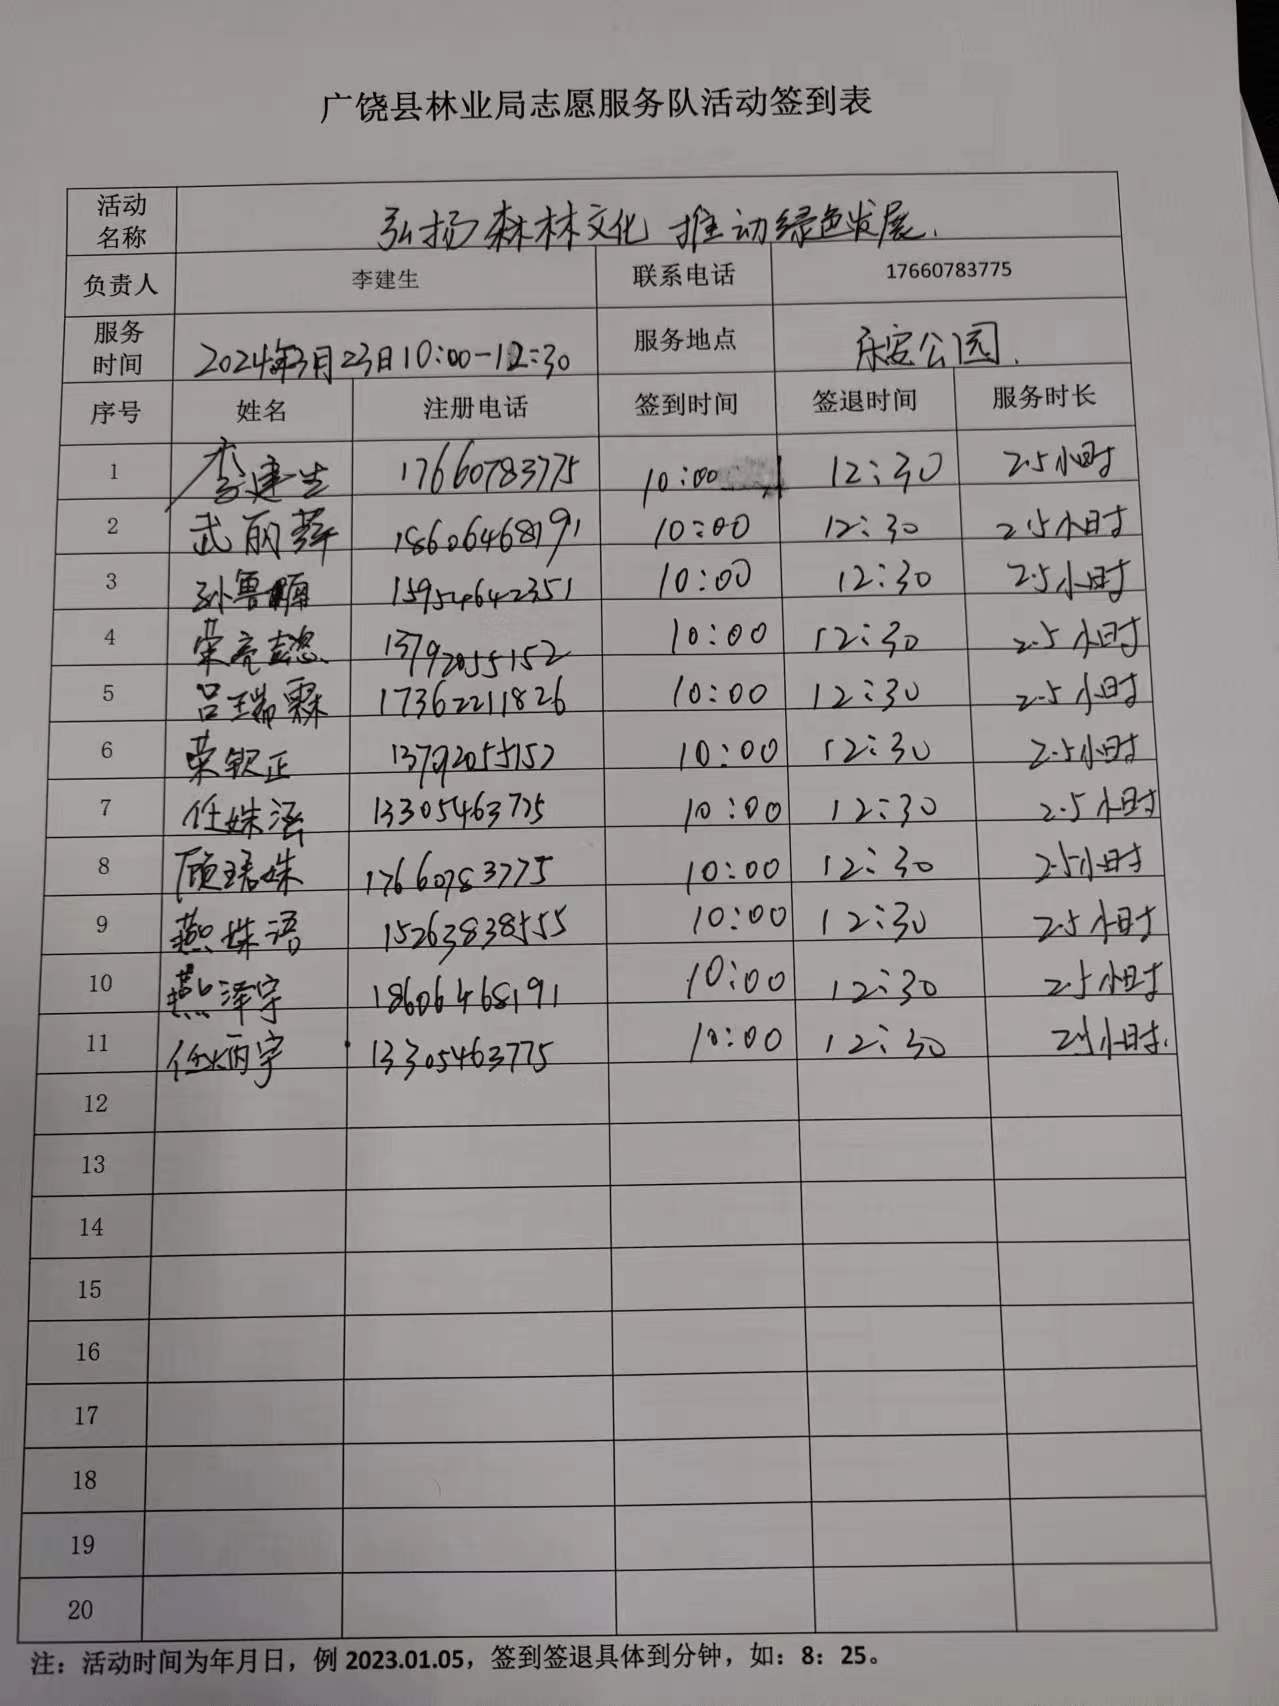 广饶县林业局志愿服务队活动签到表
活动名称 弘扬森林文化 推动绿色发展.
负责人 李建生 联系电话 17660783775
服务时间 2024年3月23日10:00-12:30 服务地点 乐安公园.
序号 姓名 注册电话 签到时间 签退时间 服务时长
1 李建生 17660783775 10:00 12:30 2.5小时
2 武丽萍 18606468191 10:00 12:30 2.5小时
3 孙鲁 15954642351 10:00 12:30 2.5小时
4 荣亮 13792055152 10:00 12:30 2.5小时
5 吕瑞霖 17362211826 10:00 12:30 2.5小时
6 荣钦正 13792055152 10:00 12:30 2.5小时
7 任姝涵 13305463775 10:00 12:30 2.5小时
8 顾珺姝 17660783775 10:00 12:30 2.5小时
9 燕姝语 15263838555 10:00 12:30 2.5小时
10 燕泽宇 18606468191 10:00 12:30 2.5小时
11 任炳宇 13305463775 10:00 12:30 小时.
12
13
14
15
16
17
18
19
20
注：活动时间为年月日，例 2023.01.05，签到签退具体到分钟，如：8：25。